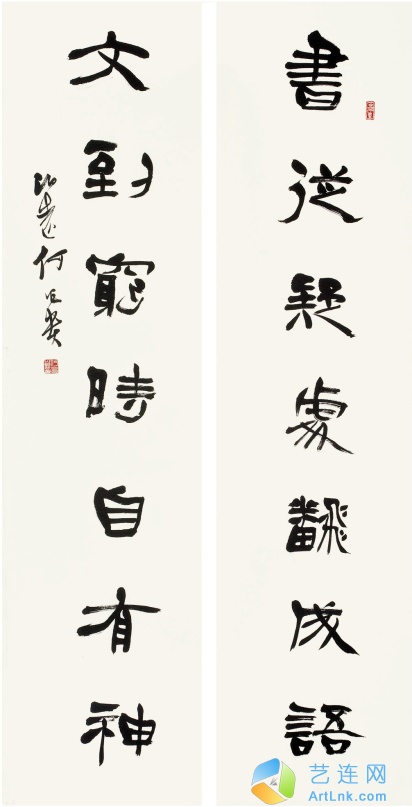 書從疑處翻成語
文到窮時自有神
艺连网
ArtLnk.com